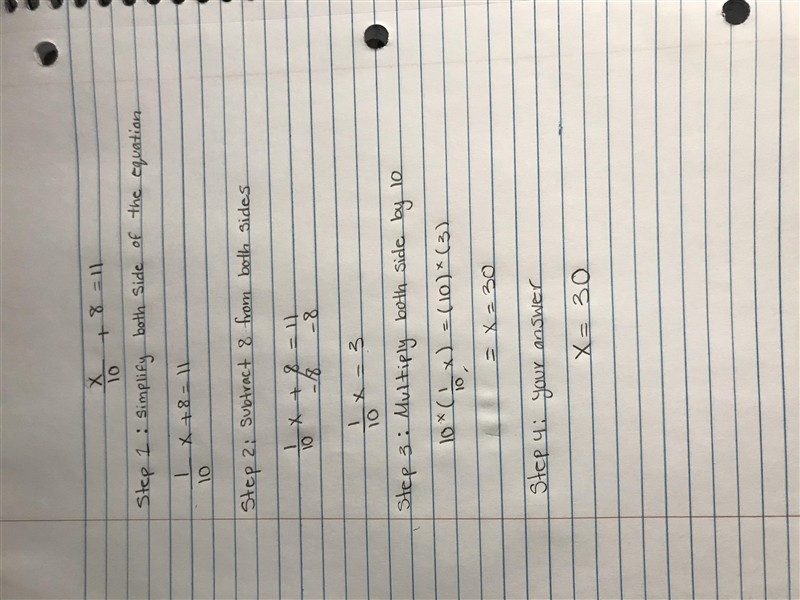 x/10 + 8 = 11
Step 1 : Simplify both side of the equation
1/10 x + 8 = 11
Step 2: Subtract 8 from both sides
1/10 x + 8 = 11
-8 -8
1/10 x = 3
Step 3 : Multiply both side by 10
10 × (1/10 x) = (10) × (3)
= x = 30
Step 4: Your answer
x = 30